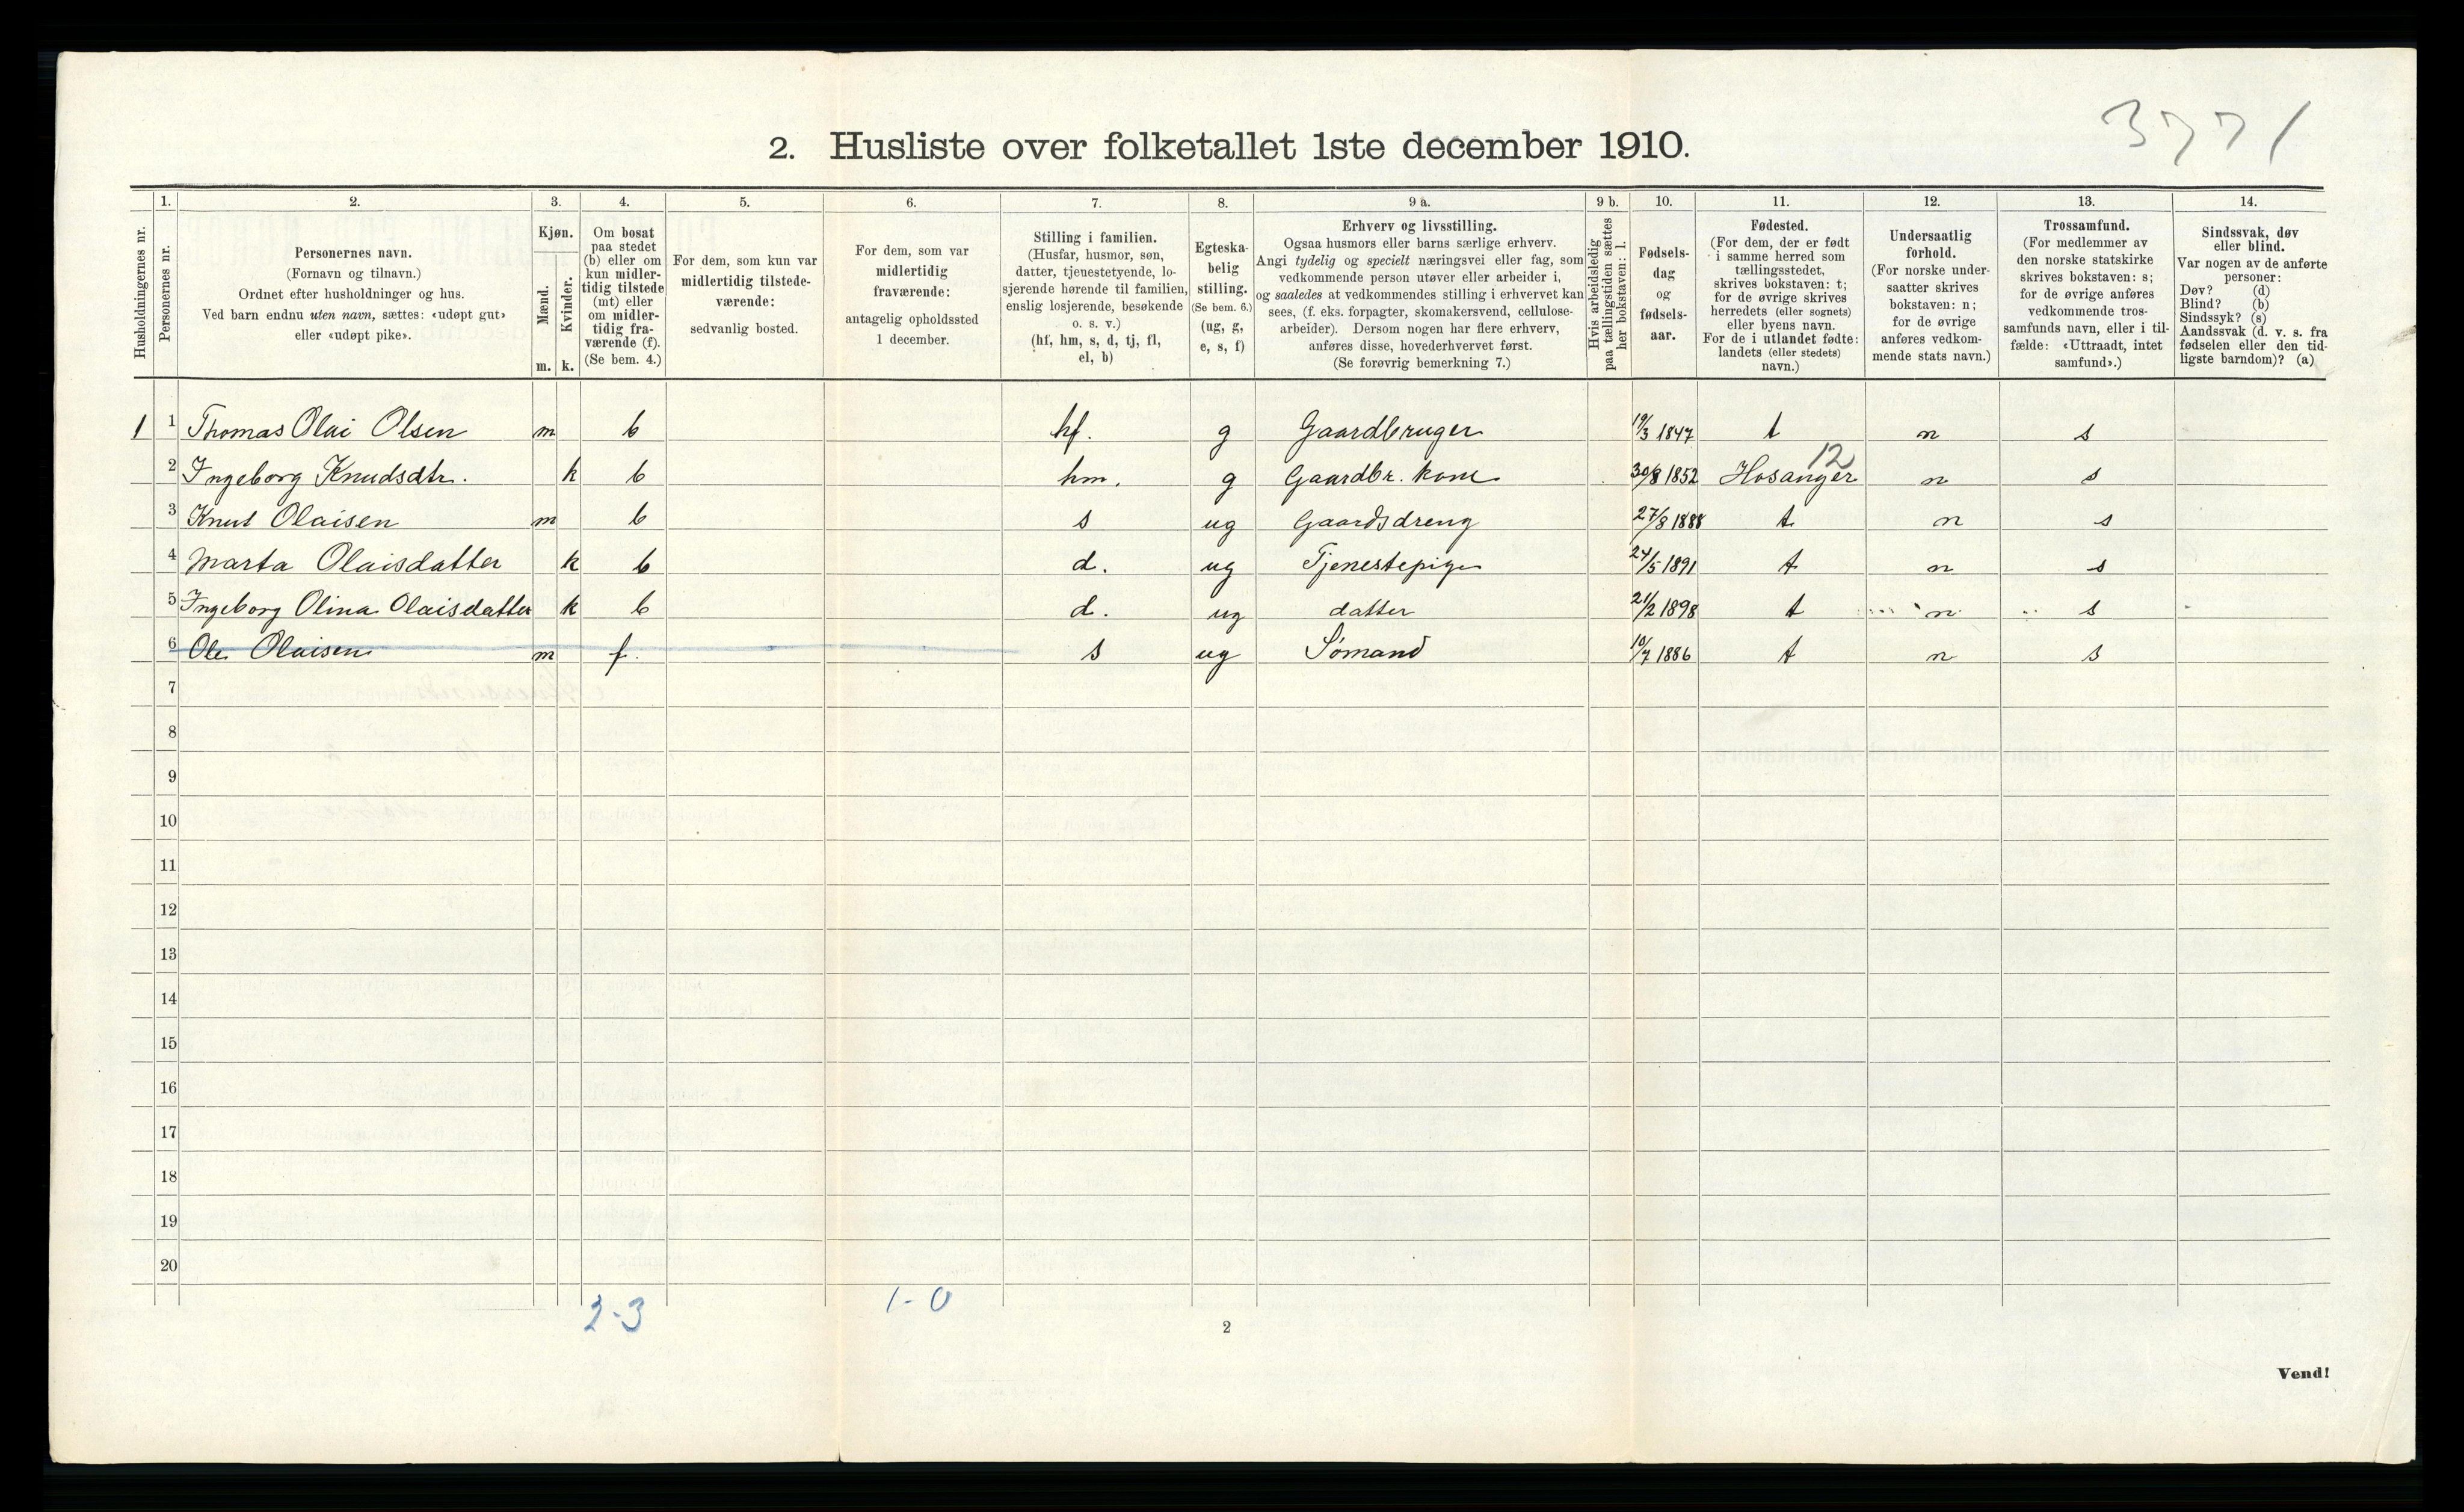 3771
2. Husliste over folketallet 1ste december 1910.
Husholdningernes nr.
1.
Personernes nr.
2.
Personernes navn.
(Fornavn og tilnavn.)
Ordnet efter husholdninger og hus.
Ved barn endnu uten navn, sættes: «udøpt gut»
eller «udøpt pike».
3.
Kjøn.
Mænd.
Kvinder.
m. k.
4.
Om bosat
paa stedet
(b) eller om
kun midler-
tidig tilstede
(mt) eller
om midler-
tidig fra-
værende (f).
(Se bem. 4.)
5.
For dem, som kun var
midlertidig tilstede-
værende:
sedvanlig bosted.
6.
For dem, som var
midlertidig
fraværende:
antagelig opholdssted
1 december.
7.
Stilling i familien.
(Husfar, husmor, søn,
datter, tjenestetyende, lo-
sjerende hørende til familien,
enslig losjerende, besøkende
o. s. v.)
(hf, hm, s, d, tj, fl,
el, b)
8.
Egteska-
belig
stilling.
(Se bem. 6.)
(ug, g,
e, s, f)
9 a.
Erhverv og livsstilling.
Ogsaa husmors eller barns særlige erhverv.
Angi tydelig og specielt næringsvei eller fag, som
vedkommende person utøver eller arbeider i,
og saaledes at vedkommendes stilling i erhvervet kan
sees, (f. eks. forpagter, skomakersvend, cellulose-
arbeider). Dersom nogen har flere erhverv,
anføres disse, hovederhvervet først.
(Se forøvrig bemerkning 7.)
9 b.
Hvis arbeidsledig
paa tællingstiden sættes
her bokstaven: l.
10.
Fødsels-
dag
og
fødsels-
aar.
11.
Fødested.
(For dem, der er født
i samme herred som
tællingsstedet,
skrives bokstaven: t;
for de øvrige skrives
herredets (eller sognets)
eller byens navn.
For de i utlandet fødte:
landets (eller stedets)
navn.)
12.
Undersaatlig
forhold.
(For norske under-
saatter skrives
bokstaven: n;
for de øvrige
anføres vedkom-
mende stats navn.)
13.
Trossamfund.
(For medlemmer av
den norske statskirke
skrives bokstaven: s;
for de øvrige anføres
vedkommende tros-
samfunds navn, eller i til-
fælde: «Uttraadt, intet
samfund».)
14.
Sindssvak, døv
eller blind.
Var nogen av de anførte
personer:
Døv? (d)
Blind? (b)
Sindssyk? (s)
Aandssvak (d. v. s. fra
fødselen eller den tid-
ligste barndom)? (a)
1 1 Thomas Olai Olsen m b hf. g Gaardbruger 19/3 1847 t n s
12
2 Ingeborg Knudsdtr. k b hm. g Gaardbr. kone 30/8 1852 Hosanger n s
3 Knut Olaisen m b s ug Gaardsdreng 27/8 1888 t n s
4 Marta Olaisdatter k b d. ug Tjenestepige 24/5 1891 t n s
5 Ingeborg Olina Olaisdatter k b d. ug datter 21/2 1898 t n s
6 Ole Olaisen m f. s ug Sømand 10/7 1886 t n s
7
8
9
10
11
12
13
14
15
16
17
18
19
20
2-3 1-0
2
Vend!